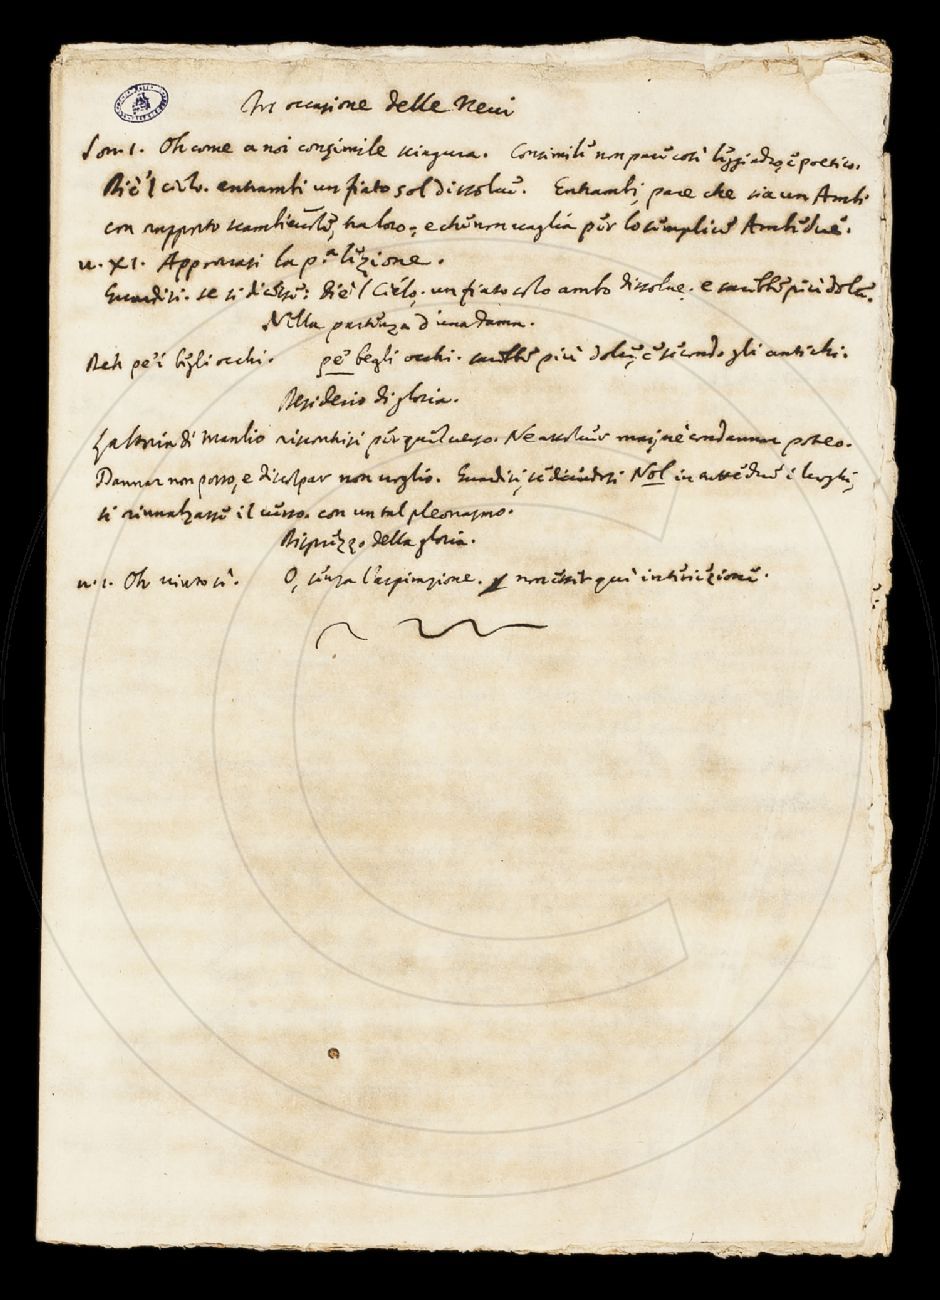 In occasione delle Nevi
Son. 1. Oh come a noi consimile sciagura. Consimile non pare così leggiadro, e poetico.
Diè 'l cielo. entrambi un fiato sol dissolve. Entrambi, pare che sia un Ambi
con rapporto scambievole, tra loro, e che non vaglia per lo semplice Ambidue.
v. XI. Approvasi la p.a lezione.
Guardisi. se si dicesse: diè l Cielo, un fiato solo ambo dissolve. e sarebbe più dolce.
Nella partenza d'una dama.
Deh pe' i begli occhi. pe' begli occhi. sarebbe più dolce, e secondo gli antichi.
Desiderio di gloria.
La storia di Manlio per quel verso. Ne assolver mai, nè condannar poteo.
Dannar non posso, e discolpar non voglio. Guardisi, se dicendosi Nol in i luoghi,
si rinnalzasse il verso. con un tal pleonasmo.
Disprezzo della gloria.
v. 1. Oh vivoro sì. O, senza l'aspirazione. non esser qui interiezione.